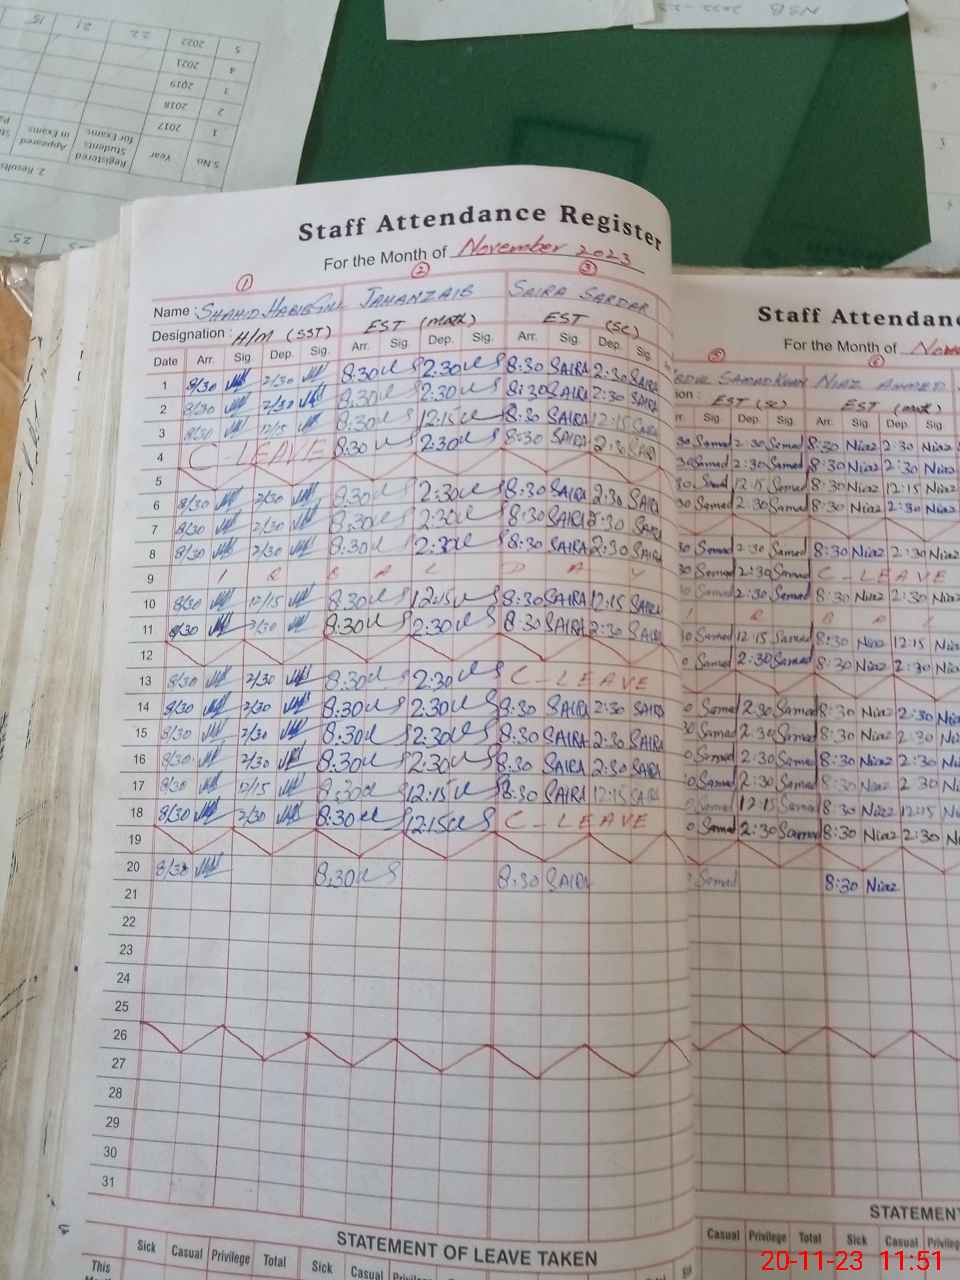 NSB 2022-23
5 2022 22 21 15
4 2021
1 2019
2 2018
1 2017
S.No. Year Registered Students for Exams Appeared in Exams
2. Results
25
Staff Attendance Register
For the Month of November 2023
1 2 3
Name : SHAHID HABIB JAHANZAIB SAIRA SARDAR
Designation : H/M (SST) EST (Math) EST (SC)
Date Arr. Sig. Dep. Sig. Arr. Sig. Dep. Sig. Arr. Sig. Dep. Sig.
1 8/30 2/30 8:30 2:30 8:30 SAIRA 2:30 SAIRA
2 8/30 2/30 8:30 2:30 8:30 SAIRA 2:30 SAIRA
3 8/30 12/15 8:30 12:15 8:30 SAIRA 12:15 SAIRA
4 C-LEAVE 8:30 2:30 8:30 SAIRA 2:30 SAIRA
5
6 8/30 2/30 8:30 2:30 8:30 SAIRA 2:30 SAIRA
7 8/30 2/30 8:30 2:30 8:30 SAIRA 2:30 SAIRA
8 8/30 2/30 8:30 2:30 8:30 SAIRA 2:30 SAIRA
9 I Q B A L D A Y
10 8/30 12/15 8:30 12:15 8:30 SAIRA 12:15 SAIRA
11 8/30 2/30 8:30 2:30 8:30 SAIRA 2:30 SAIRA
12
13 8/30 2/30 8:30 2:30 C-LEAVE
14 8/30 2/30 8:30 2:30 8:30 SAIRA 2:30 SAIRA
15 8/30 2/30 8:30 2:30 8:30 SAIRA 2:30 SAIRA
16 8/30 2/30 8:30 2:30 8:30 SAIRA 2:30 SAIRA
17 8/30 12/15 8:30 12:15 8:30 SAIRA 12:15 SAIRA
18 8/30 2/30 8:30 12:15 C-LEAVE
19
20 8/30 8:30 8:30 SAIRA
21
22
23
24
25
26
27
28
29
30
31
STATEMENT OF LEAVE TAKEN
Sick Casual Privilege Total Sick Casual
This
Staff Attendanc
For the Month of Nov
5 6
SAMAD KHAN NIAZ AHMED
ion : EST (SC) EST (Math)
Sig Dep. Sig. Arr. Sig. Dep. Sig
30 Samad 2:30 Samad 8:30 Niaz 2:30 Niaz
30 Samad 2:30 Samad 8:30 Niaz 2:30 Niaz
30 Samad 12:15 Samad 8:30 Niaz 12:15 Niaz
30 Samad 2:30 Samad 8:30 Niaz 2:30 Niaz
30 Samad 2:30 Samad 8:30 Niaz 2:30 Niaz
30 Samad 2:30 Samad C-LEAVE
30 Samad 2:30 Samad 8:30 Niaz 2:30 Niaz
I Q B A L
30 Samad 12:15 Samad 8:30 Niaz 12:15 Niaz
0 Samad 2:30 Samad 8:30 Niaz 2:30 Niaz
0 Samad 2:30 Samad 8:30 Niaz 2:30 Niaz
30 Samad 2:30 Samad 8:30 Niaz 2:30 Niaz
0 Samad 2:30 Samad 8:30 Niaz 2:30 Niaz
0 Samad 2:30 Samad 8:30 Niaz 2:30 Niaz
0 Samad 12:15 Samad 8:30 Niaz 12:15 Niaz
0 Samad 2:30 Samad 8:30 Niaz 2:30 Niaz
Samad 8:30 Niaz
STATEMENT
Casual Privilege Total Sick Casual Privilege
20-11-23 11:51